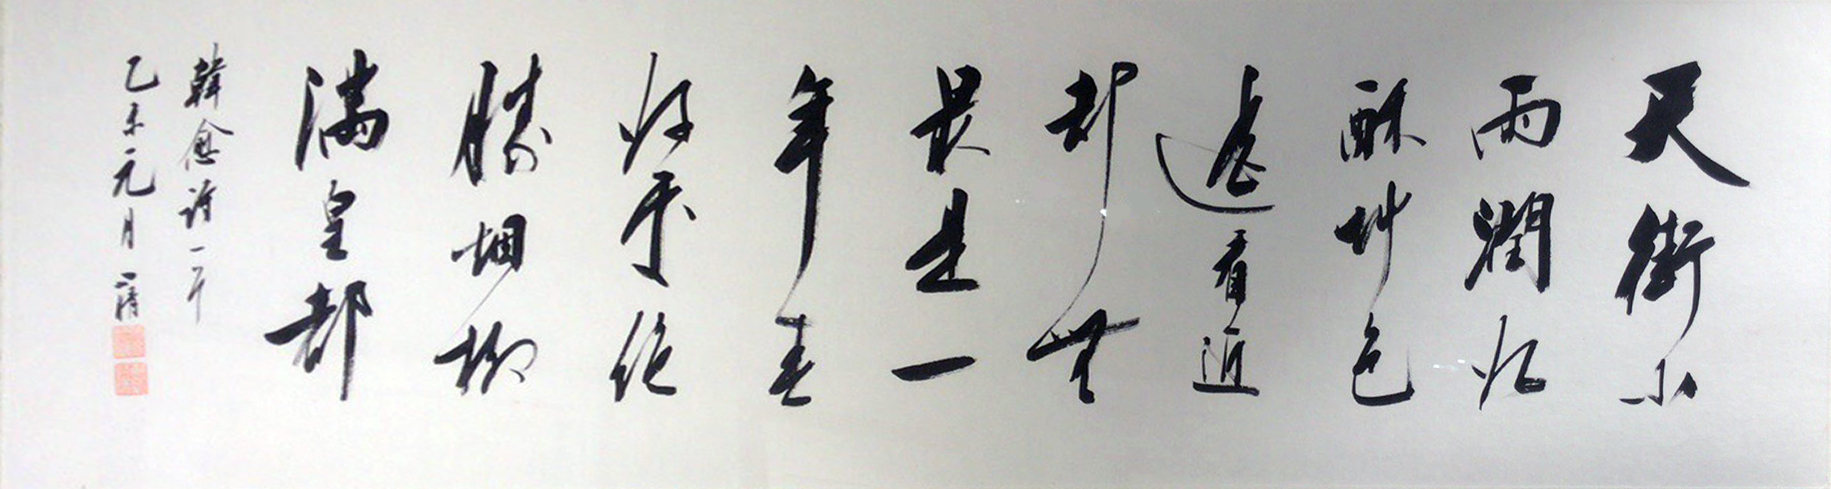 天街小
雨潤如
酥草色
遥看近
却無
最是一
年春
好處絕
勝烟柳
滿皇都
韓愈詩一首
乙未元月 清